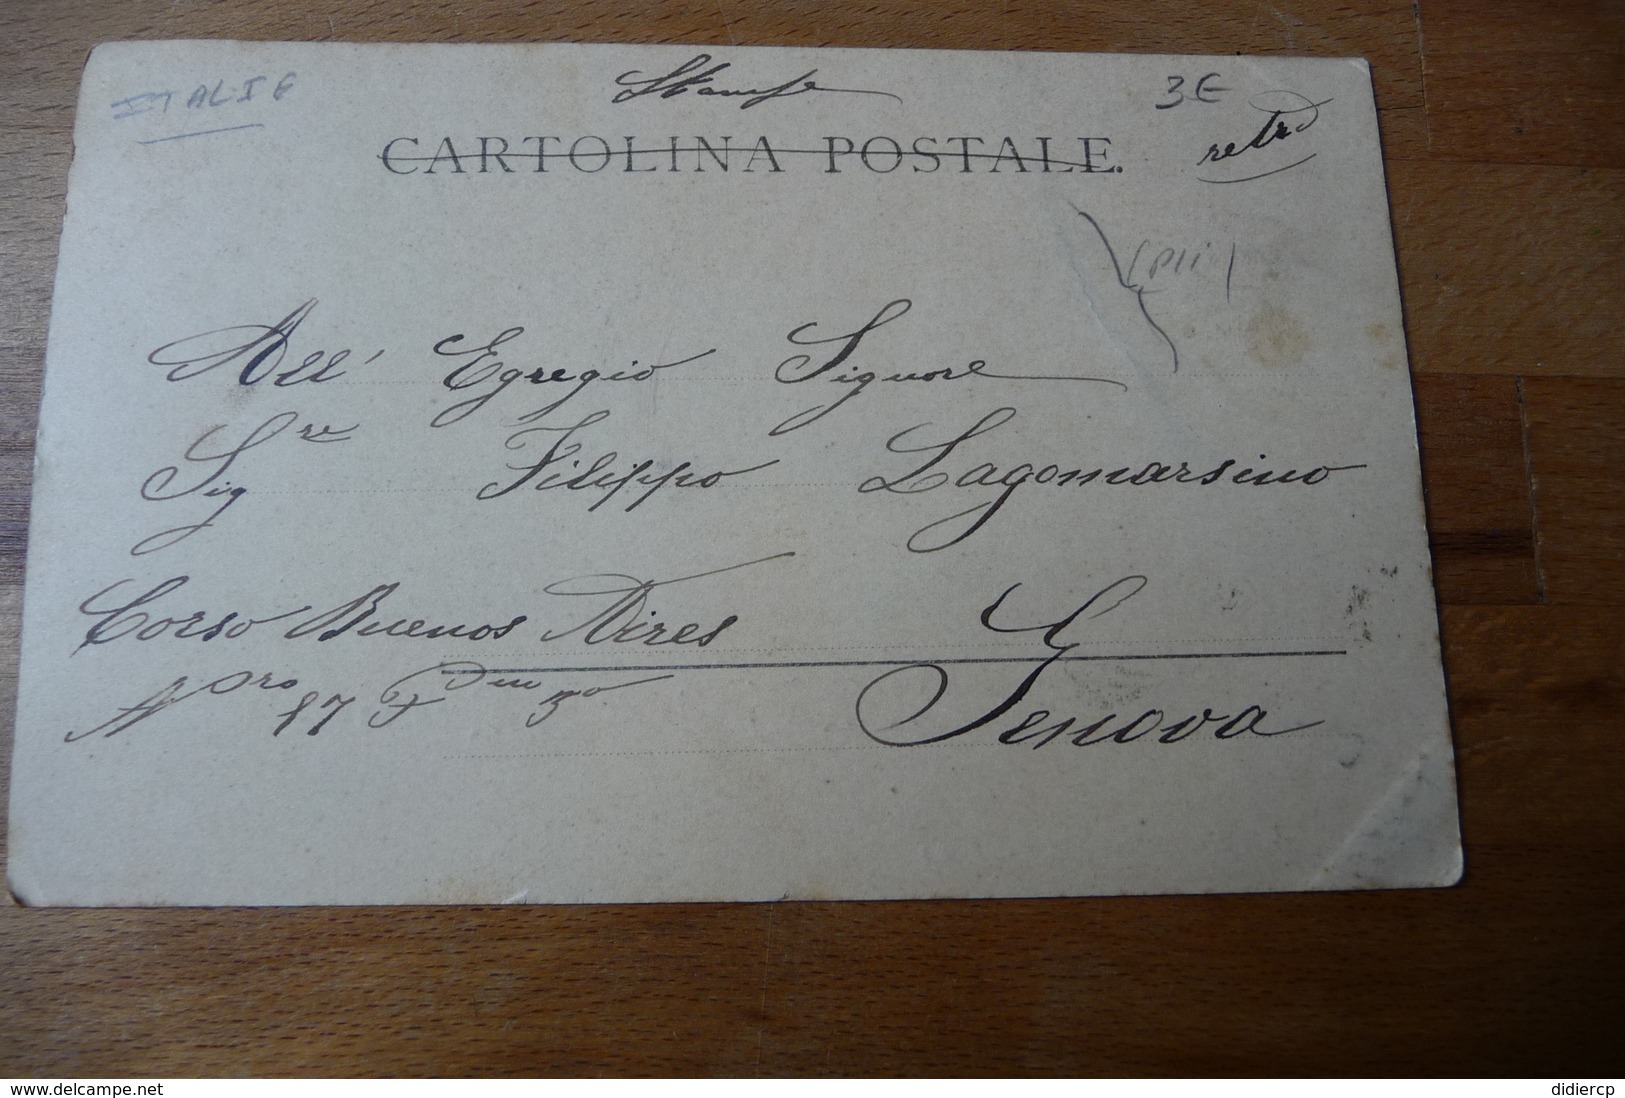 ITALIE
Stampe
3€
CARTOLINA POSTALE.
retro
(pli)
All' Egregio Signore
Sigre Filippo Lagomarsino
Corso Buenos Aires
Nro 17 5o
Genova
www.delcampe.net
didiercp